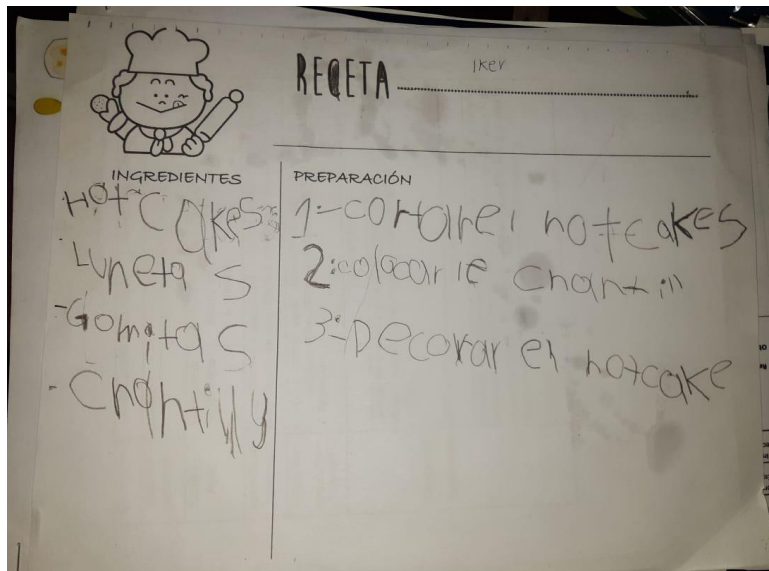 REQETA
Iker
INGREDIENTES
-Hot Cakes
-Luneta s
-Gomitas
-Chantilly
PREPARACIÓN
1:-cortar el hotcakes
2:colocar le Chantill
3:-Decorar el hotcake